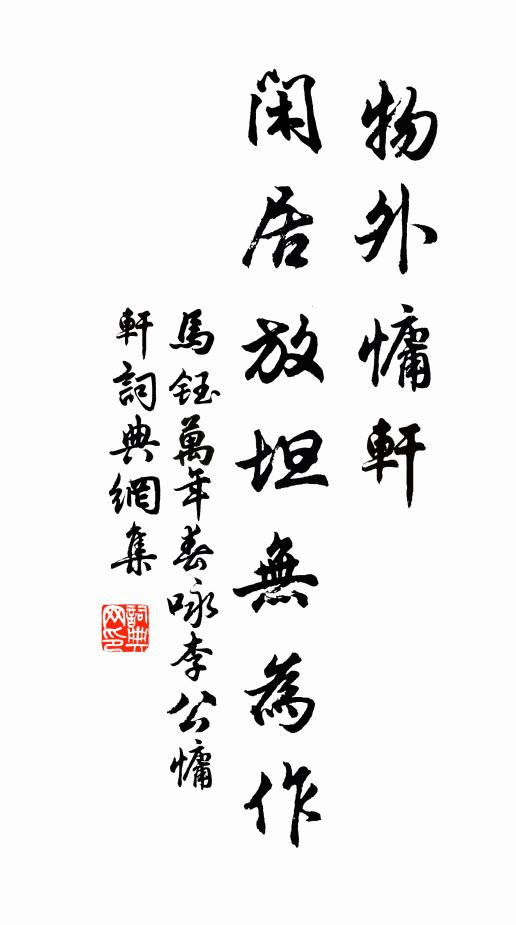 物外慵軒
閑居放坦無為作
馬鈺萬年春咏李公慵
軒詞典網集
詞典
网印